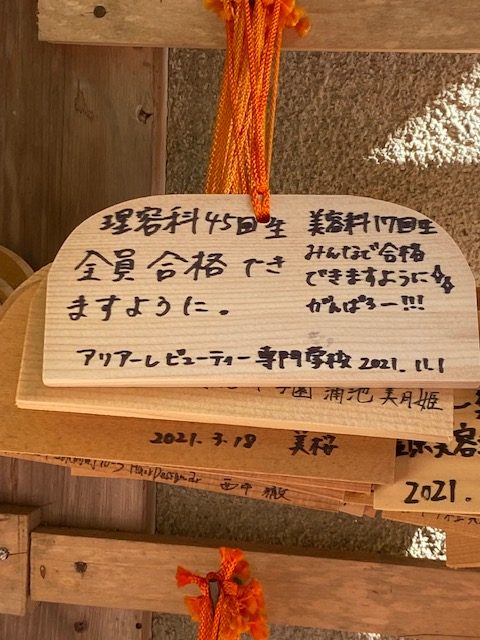 理容科45回生
全員合格でき
ますように。
美容科17回生
みんなで合格
できますように☆☆
がんばろー!!!
アリアーレビューティー専門学校 2021.11.1
園 蒲池 美月姫
2021.3.18 美桜
Hair Designer
2021.